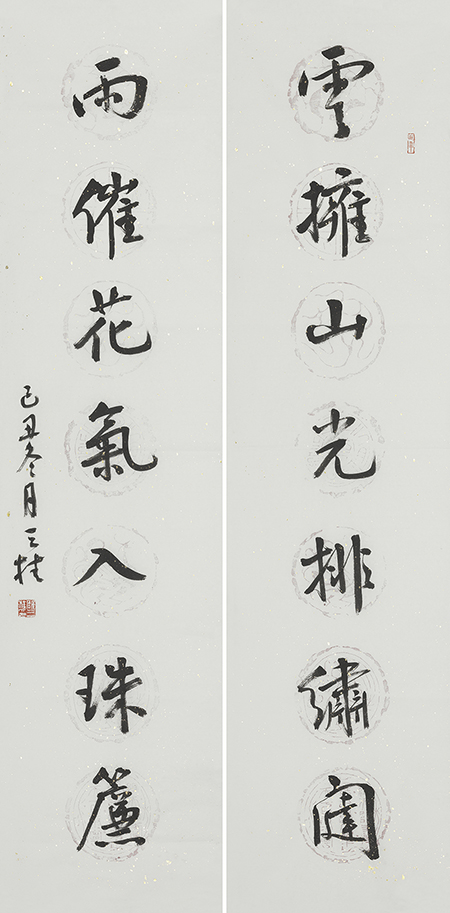 雲擁山光排繡闥
雨催花氣入珠簾
己丑冬月